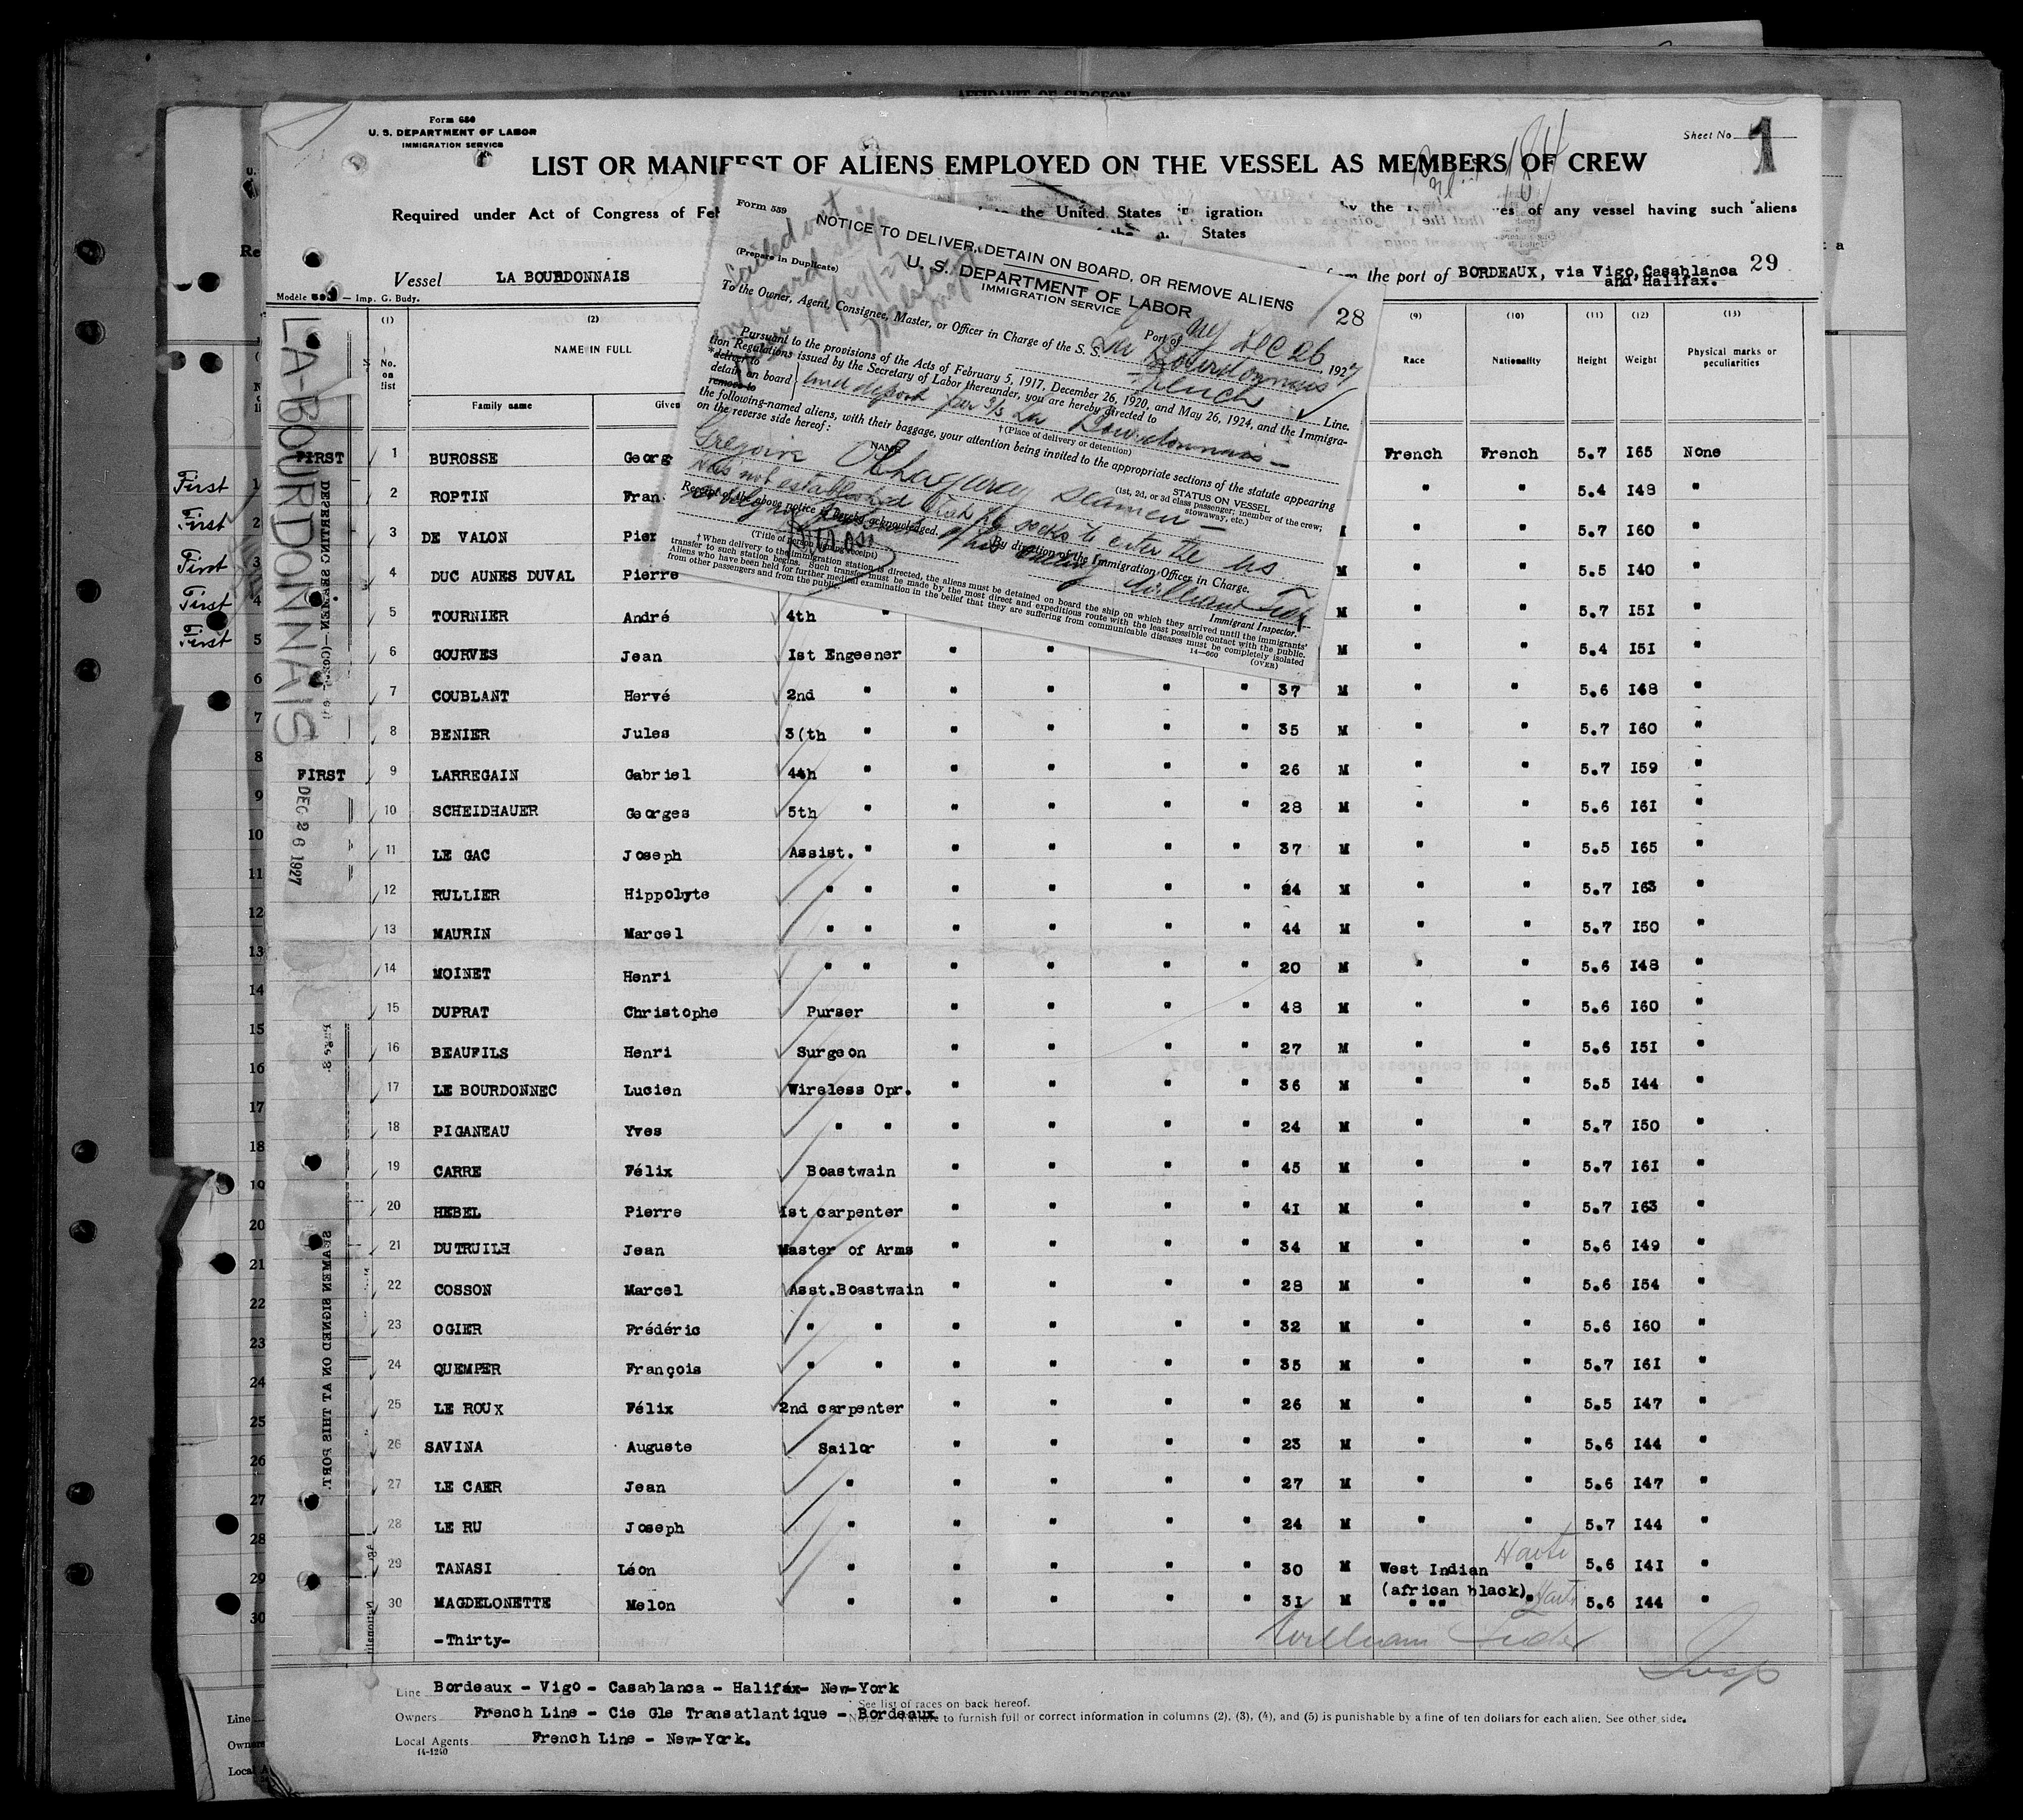 Form 680
U. S. DEPARTMENT OF LABOR
IMMIGRATION SERVICE
Sheet No. 1
LIST OR MANIFEST OF ALIENS EMPLOYED ON THE VESSEL AS MEMBERS OF CREW
Required under Act of Congress of Feb
the United States
igration
by the
es of any vessel having such aliens
States
Vessel LA BOURDONNAIS
from the port of BORDEAUX, via Vigo, Casablanca
and Halifax.
29
Modèle — Imp. G. Budy.
Form 539
(Prepare in Duplicate)
NOTICE TO DELIVER, DETAIN ON BOARD, OR REMOVE ALIENS
U. S. DEPARTMENT OF LABOR
IMMIGRATION SERVICE
28
Port of NY Dec 26, 1927
To the Owner, Agent, Consignee, Master, or Officer in Charge of the S. S. La Bourdonnais
French Line.
Pursuant to the provisions of the Acts of February 5, 1917, December 26, 1920, and May 26, 1924, and the Immigra-
tion Regulations issued by the Secretary of Labor thereunder, you are hereby directed to
*deliver to
detain on board and deport per S/S La Bourdonnais
remove to
†(Place of delivery or detention)
the following-named aliens, with their baggage, your attention being invited to the appropriate sections of the statute appearing
on the reverse side hereof:
NAME
STATUS ON VESSEL
(1st, 2d, or 3d class passenger; member of the crew;
stowaway, etc.)
Gregoire seamen
has not established that he seeks to enter the US
Receipt of the above notice is hereby acknowledged.
By direction of the Immigration Officer in Charge.
(Title of person signing receipt)
William
Immigrant Inspector.
†When delivery to the immigration station is directed, the aliens must be detained on board the ship on which they arrived until the immigrants'
transfer to such station begins. Such transfer must be made by the most direct and expeditious route with the least possible contact with the public.
Aliens who have been held for further medical examination in the belief that they are suffering from communicable diseases must be completely isolated
from other passengers and from the public.
14—660 (OVER)
(1) (2) (9) (10) (11) (12) (13)
No. on list NAME IN FULL Race Nationality Height Weight Physical marks or peculiarities
Family name Given
FIRST 1 BUROSSE Georg French French 5.7 165 None
2 ROPTIN Fran " " 5.4 148 "
3 DE VALON Pier " " 5.7 160 "
4 DUC AUNES DUVAL Pierre M " " 5.5 140 "
5 TOURNIER André 4th " M " " 5.7 151 "
6 GOURVES Jean 1st Engeener " " M " " 5.4 151 "
7 COUBLANT Hervé 2nd " " " " " 37 M " " 5.6 148 "
8 BENIER Jules 3(th " " " " " 35 M " " 5.7 160 "
FIRST 9 LARREGAIN Gabriel 44h " " " " " 26 M " " 5.7 159 "
10 SCHEIDHAUER Georges 5th " " " " " 28 M " " 5.6 161 "
11 LE GAC Joseph Assist. " " " " " 37 M " " 5.5 165 "
12 RULLIER Hippolyte " " " " " " 24 M " " 5.7 163 "
13 MAURIN Marcel " " " " " " 44 M " " 5.7 150 "
14 MOINET Henri " " " " " " 20 M " " 5.6 148 "
15 DUPRAT Christophe Purser " " " " 48 M " " 5.6 160 "
16 BEAUFILS Henri Surgeon " " " " 27 M " " 5.6 151 "
17 LE BOURDONNEC Lucien Wireless Opr. " " " " 36 M " " 5.5 144 "
18 PIGANEAU Yves " " " " " " 24 M " " 5.7 150 "
19 CARRE Félix Boastwain " " " " 45 M " " 5.7 161 "
20 HEBEL Pierre 1st carpenter " " " " 41 M " " 5.7 163 "
21 DUTRUILH Jean Master of Arms " " " " 34 M " " 5.6 149 "
22 COSSON Marcel Asst.Boastwain " " " " 28 M " " 5.6 154 "
23 OGIER Frédéric " " " " " " 32 M " " 5.6 160 "
24 QUEMPER François " " " " " " 35 M " " 5.7 161 "
25 LE ROUX Félix 2nd carpenter " " " " 26 M " " 5.5 147 "
26 SAVINA Auguste Sailor " " " " 23 M " " 5.6 144 "
27 LE CAER Jean " " " " " 27 M " " 5.6 147 "
28 LE RU Joseph " " " " " 24 M " " 5.7 144 "
29 TANASI Léon " " " " " 30 M West Indian Haiti " 5.6 141 "
(african black)
30 MAGDELONETTE Melon " " " " " 31 M " "" Haiti 5.6 144 "
-Thirty-
William
Insp
Line Bordeaux - Vigo - Casablanca - Halifax- New-York
See list of races on back hereof.
Owners French Line - Cie Gle Transatlantique - Bordeaux
to furnish full or correct information in columns (2), (3), (4), and (5) is punishable by a fine of ten dollars for each alien. See other side.
Local Agents French Line - New-York.
14-1240
LA-BOURDONNAIS
DEC 26 1927
DEPARTING SEAMEN
SEAMEN SIGNED ON AT THIS PORT.
First
First
First
First
First
AFFIDAVIT OF SURGEON
Line
Owners
Local A